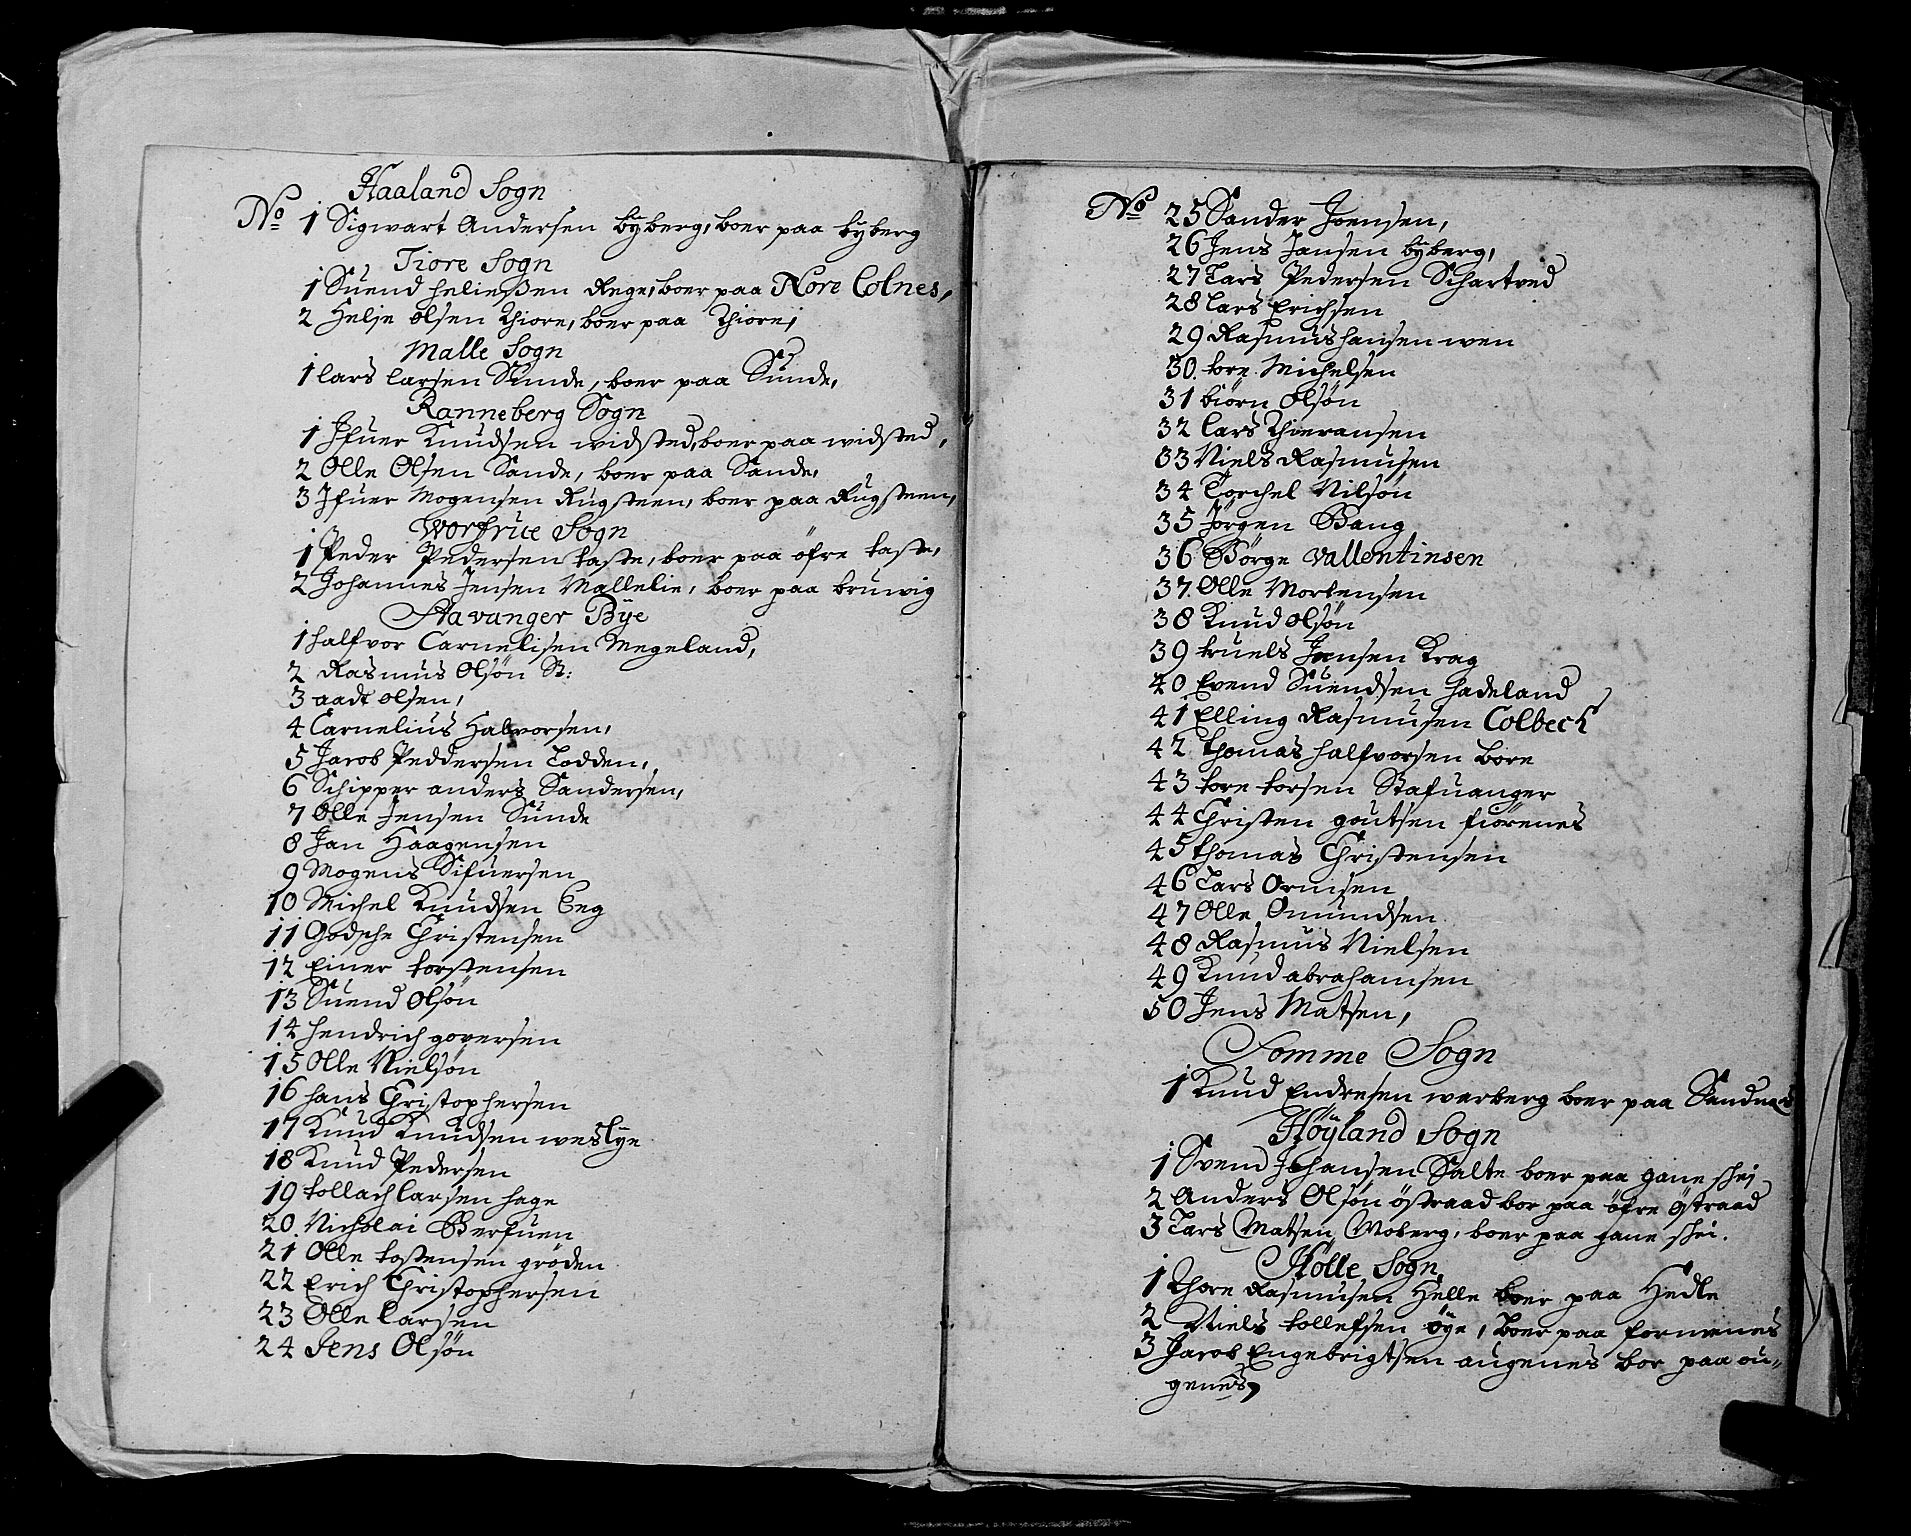 Haaland Sogn
No 1 Sigwart Andersen byberg, boer paa byberg
Tiore Sogn
1 Suend heließen Rege, boer paa Nore Colnes,
2 Helje olsen Thiore, boer paa Thiore,
Malle Sogn
1 lars larsen Sunde, boer paa Sunde,
Ranneberg Sogn
1 Ifuer Knudsen widsted, boer paa widsted,
2 Olle Olsen Sande, boer paa Sande,
3 Ifuer Mogensen Rugsteen, boer paa Rugsteen,
Worfrue Sogn
1 Peder Pedersen taste, boer paa öfre taste,
2 Johannes Jensen Mallelie, boer paa bruwig
Stavanger Bÿe
1 halfvor Carnelisen Megeland,
2 Rasmus Olsön St:
3 aadt olsen,
4 Carnelius Halvorsen,
5 Jacob Peddersen Todden,
6 Schipper anders Sandersen,
7 Olle Jensen Sunde
8 Jan Haagensen
9 Mogens Sifuersen
10 Michel Knudsen Eeg
11 Godsche Christensen
12 Einer torstensen
13 Suend Olsön
14 hendrich goversen
15 Olle Nielsön
16 hans Christophersen
17 Knud Knudsen weslye
18 Knud Pedersen
19 tollach larsen hage
20. Nicholai Berfuen
21 Olle tostensen gröden
22 Erich Christophersen
23 Olle larsen
24 Jens Olsön
No 25 Sander Joensen,
26 Jens Jansen byberg,
27 Lars Pedersen Schartved
28 lars Erichsen
29 Rasmus hansen wen
30. tore Michelsen
31 biörn Olsön
32 lars Thoransen
33 Niels Rasmusen
34 Torchel Nilsön
35 Jörgen Bang
36 Börge Vallentinsen
37. Olle Mortensen
38 Knud olsön
39 truels Jensen Krag
40 Evend Suendsen hadeland
41 Elling Rasmusen Colbeck
42 thomas halfvorsen bore
43 tore torsen Stafuanger
44 Christen goutsen fiörenes
45 thomas Christensen
46 Lars Ormsen
47 Olle Omundsen
48 Rasmus Nielsen
49 Knud abrahamsen
50 Jens Matsen,
Somme Sogn
1 Knud Endresen warberg boer paa Sandnes
Höyland Sogn
1 Svend Johansen Salte boer paa gane schei
2 Anders Olsön östraad bor paa öfre östraad
3 Lars Matsen Moberg, boer paa gane schei.
Holle Sogn
1 Thore Rasmusen Helle boer paa Hedle
2 Niels tollefsen öye, boer paa fornenes
3 Jacob Engebrigtsen augenes bor paa ou-
genes,